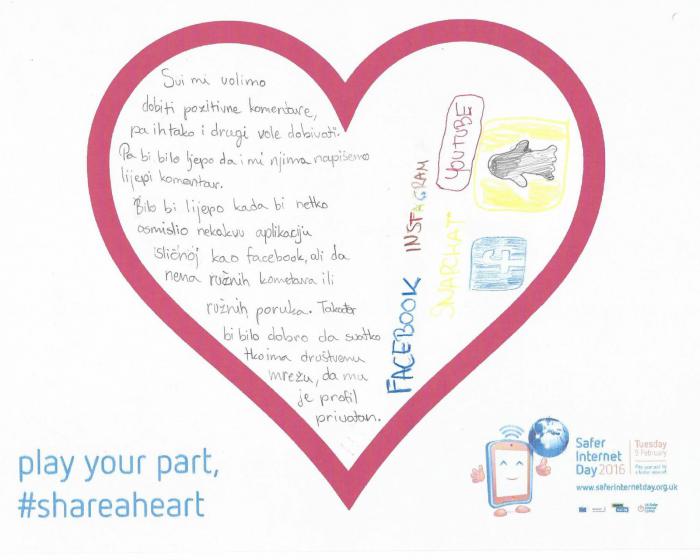 Svi mi volimo
dobiti pozitivne komentare,
pa ih tako i drugi vole dobivati.
Pa bi bilo ljepo da i mi njima napišemo
lijepi komentar.
Bilo bi lijepo kada bi netko
osmislio nekakvu aplikaciju
sličnoj kao facebook, ali da
nema ružnih kometara ili
ružnih poruka. Također
bi bilo dobro da svatko
tko ima društvenu
mrežu, da mu
je profil
privatan.
FACEBOOK
INSTAGRAM
SNAPCHAT
YOUTUBE
f
play your part,
#shareaheart
Safer
Internet
Day 2016
Tuesday
9 February
Play your part for
a better internet
www.saferinternetday.org.uk